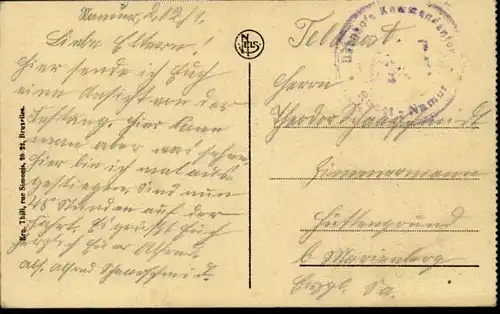 Namur, 2.02.
Liebe Eltern!
Hier sende ich Euch
eine Ansicht von der
Festung. Hier kann
man aber was sehen,
hier bin ich mal ausge-
stiegen. Sind nun
48 Stunden auf der
Fahrt. Es grüsst Euch
herzlich Euer Alfred.
Abs. Alfred
Ern. Thill, rue Simonis, 20-22, Bruxelles.
NELS
Feldpost.
Bahnhofs Kommandantur
Namur
Herrn
Theodor
Zimmermann
Hüttengrund
b Marienberg
Erzgb. Sa.